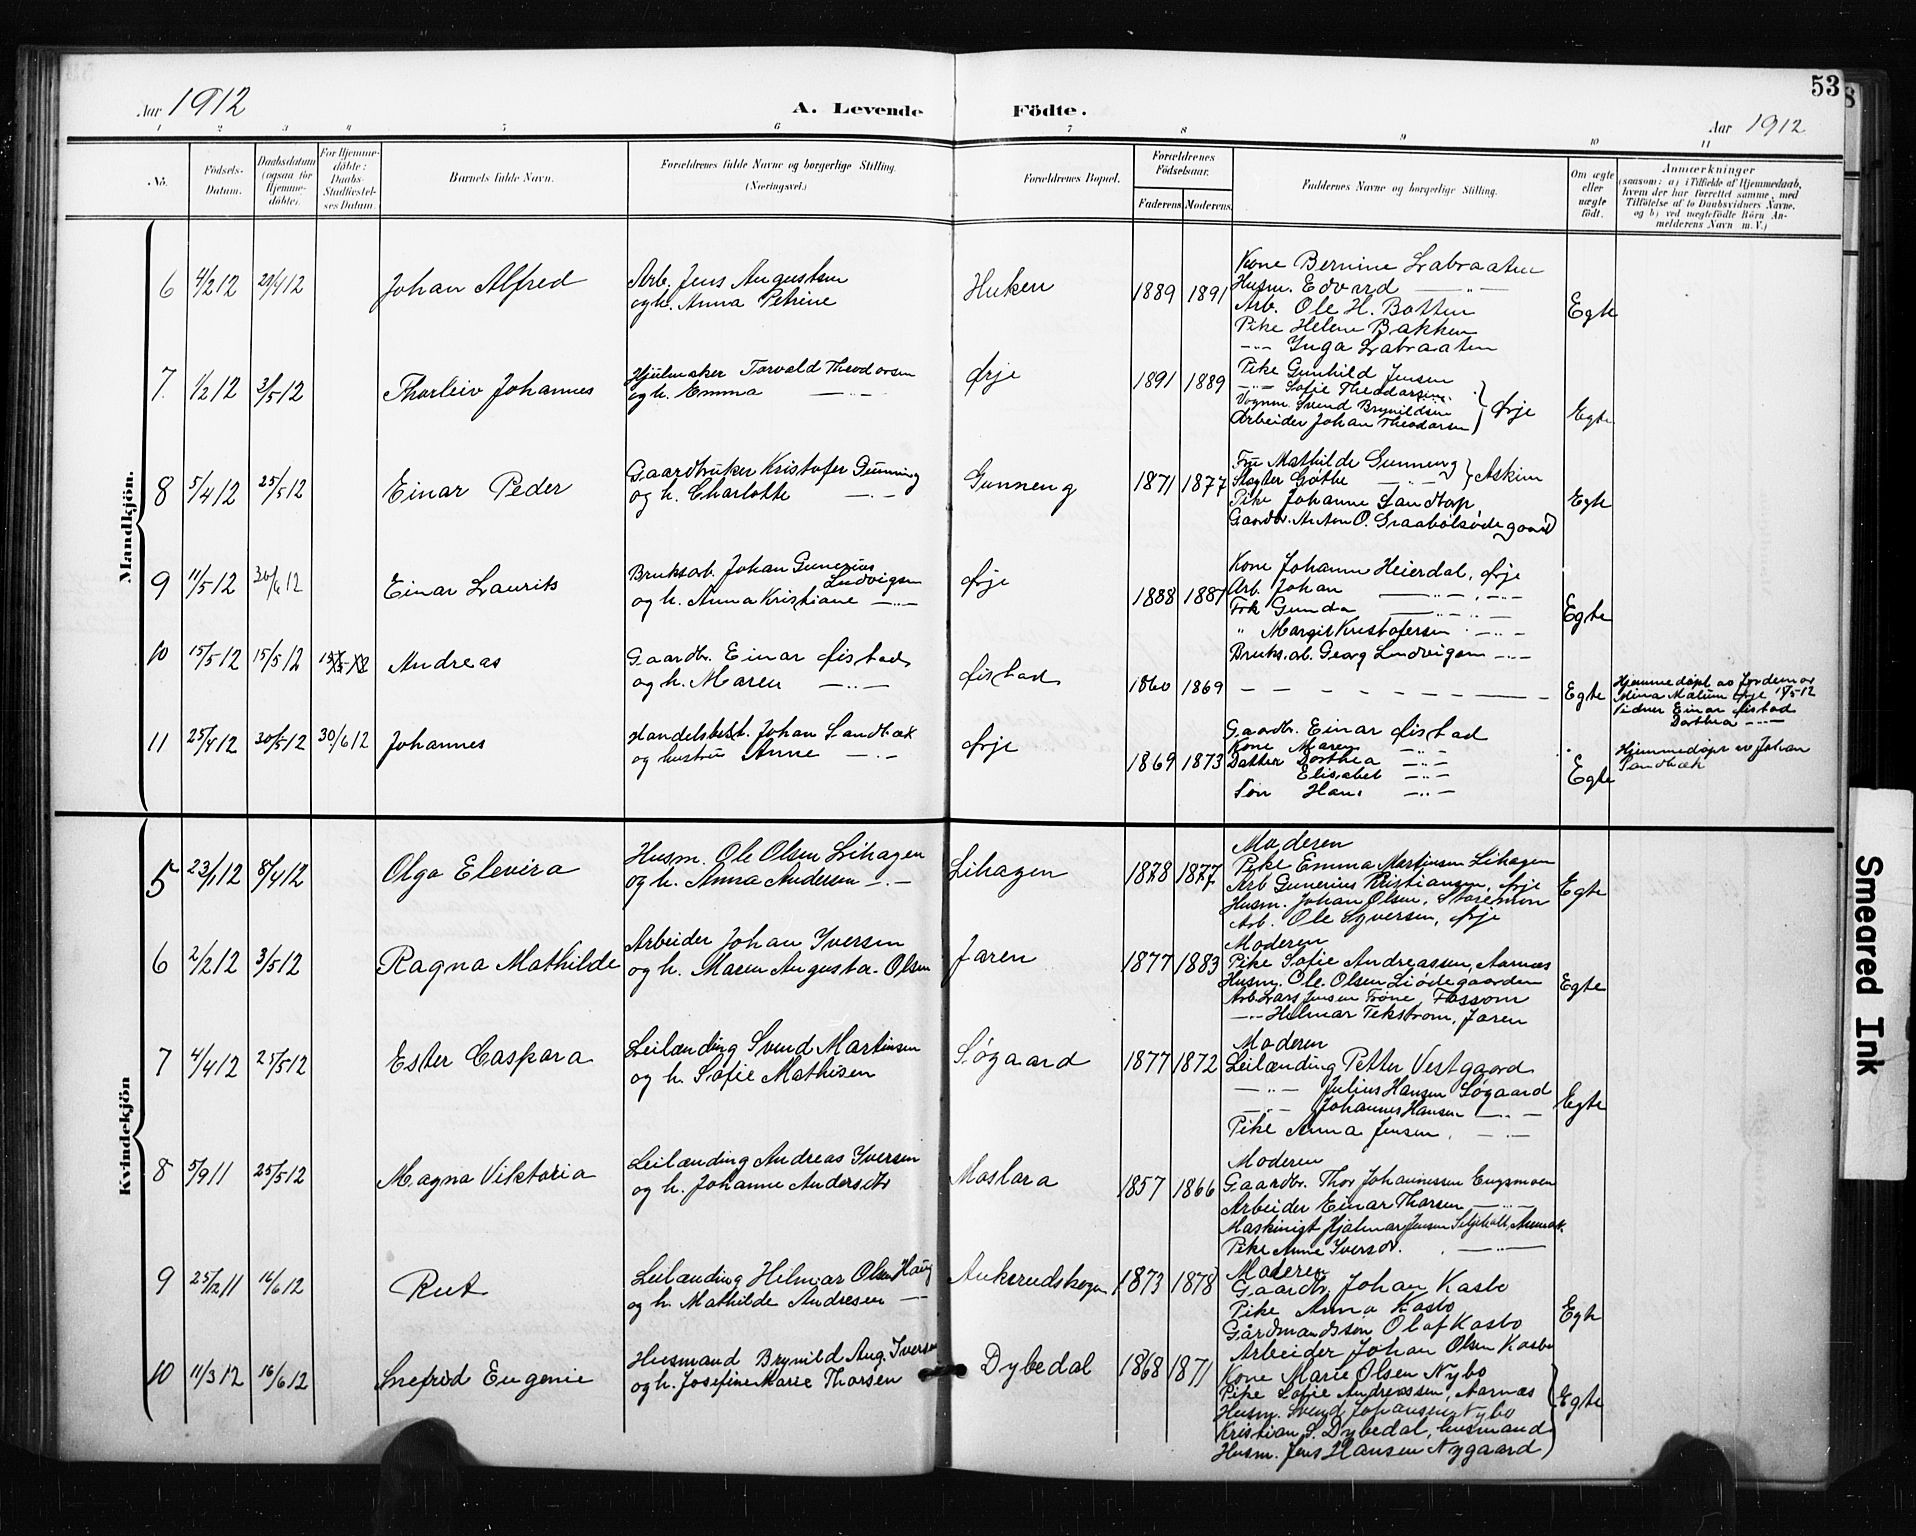 53
Aar 1912
A. Levende Födte.
Aar 1912
1 2 3 4 5 6 7 8 9 10 11
No.
Födsels-Datum.
Daabsdatum (ogsaa for Hjemme-döbte).
For Hjemme-döbte: Daabs-Stadfæstel-ses Datum.
Barnets fulde Navn.
Forældrenes fulde Navne og borgerlige Stilling. (Næringsvei.)
Forældrenes Bopæl.
Forældrenes Fødselsaar.
Faderens. Moderens.
Faddernes Navne og borgerlige Stilling.
Om ægte eller uægte födt.
Anmærkninger
(saasom: a) i Tilfælde af Hjemmedaab, hvem der har forrettet samme, med Tilföielse af to Daabsvidners Navne, og b) ved uægtefödte Börn An-melderens Navn m. V.)
Mandkjön.
6 4/2 12 29/4 12 Johan Alfred
Arb. Jens Augustsen
og h. Anna Petrine
Huken 1889 1891
Kone Bernine Labraaten
Husm. Edvard — „ —
Arb. Ole H. Botten
Pike Helene Bakken
— „ — Inga Labraaten
Egte
7. 1/2 12 3/5 12 Thorleiv Johannes
Hjulmaker Torvald Theodorsen
og h. Emma — „ —
Ørje 1891 1889
Pike Gunhild Jensen
— „ — Sofie Theodorsen
Vognm. Svend Brynildsen
Arbeider Johan Theodorsen
} Ørje
Egte
8 5/4 12 25/5 12 Einar Peder
Gaardbruker Kristofer Gunneng
og h. Charlotte — „ —
Gunneng 1871 1877
Fru Mathilde Gunneng
} Askim
Pike Johanne Sandtorp
Gaardbr. Anton O. Graabølsødegaard
Egte
9 11/5 12 30/6 12 Einar Laurits
Bruksarb. Johan Gunerius
Ludvigsen
og h. Anna Kristiane — „ —
Ørje 1888 1887
Kone Johanne Heierdal, Ørje
Arb. Johan — „ — , — „ —
Frk Gunda — „ — „ —
„ Margit Kristofersen — „ —
Bruksarb. Georg Ludvigsen — „ —
Egte
10 15/5 12 15/5 12 Andreas
Gaardbr. Einar Øistad
og h. Maren — „ —
Øistad 1860 1869
— — — — — — — —
Egte
Hjemmedøpt av Jordemor
Vidner Einar Øistad
Dorthea — „ —
11 25/4 12 30/5 12 30/6 12 Johannes
Handelsbest. Johan Sandbæk
og hustru Anne — „ —
Ørje 1869 1873
Gaardbr. Einar Øistad
Kone Maren — „ —
Datter Dorthea — „ —
Elisabet — „ —
Søn Hans — „ —
Egte
Hjemmedøpt av Johan
Sandbæk
Kvindekjön
5 23/1 12 8/4 12 Olga Elevira
Husm. Ole Olsen Lihagen
og h. Anna Andersen — „ —
Lihagen 1878 1877
Moderen
Pike Emma Martinsen Lihagen
Arb Gunerius Kristiansen, Ørje
Husm. Johan Olsen, Staremon
Arb. Ole Syversen, Ørje
Egte
6 2/2 12 3/5 12 Ragna Mathilde
Arbeider Johan Iversen
og h. Maren Augusta Olsen
Jaren 1877 1883
Moderen
Pike Sofie Andreassen, Aarnæs
Husm. Ole Olsen Liødegaarden
Arb Lars Jensen Trøne, Fossom
— „ — Helmar Tekstrøm, Jaren
Egte
7 4/4 12 25/5 12 Ester Caspara
Leilænding Svend Martinsen
og h. Sofie Mathisen
Søgaard 1877 1872
Moderen
Leilænding Petter Vestgaard
— „ — Julius Hansen Søgaard
— „ — Johannes Hansen — „ —
Pike Anna Jensen — „ —
Egte
8 5/9 11 25/5 12 Magna Viktoria
Leilænding Andreas Iversen
og h. Johanne Andersdtr
Moslora 1857 1866
Moderen
Gaardbr. Thor Johannessen Engsmoen
Arbeider Einar Thorsen — „ —
Pike Anne Iversdr. — „ —
9 25/12 11 16/6 12 Rut
Leilænding Hilmar Olsen Haug
og h. Mathilde Andresen — „ —
Aukerudskogen 1873 1878
Moderen
Gaardbr. Johan Kasbo
Pike Anna Kasbo
Gårdmandssøn Olaf Kasbo
Arbeider Johan Olsen Kasbo
Egte
10 11/3 12 16/6 12 Snefrid Eugenie
Husmand Brynild Aug. Iversen
og h. Josefine Marie Thorsen
Dybedal 1868 1871
Kone Marie Olsen Nybo
Pike Sofie Andreassen, Aarnæs
Husm. Svend Johansen, Nybo
Kristian S. Dybedal, husmand
Husm. Jens Hansen Nygaard
Egte
Smeared Ink